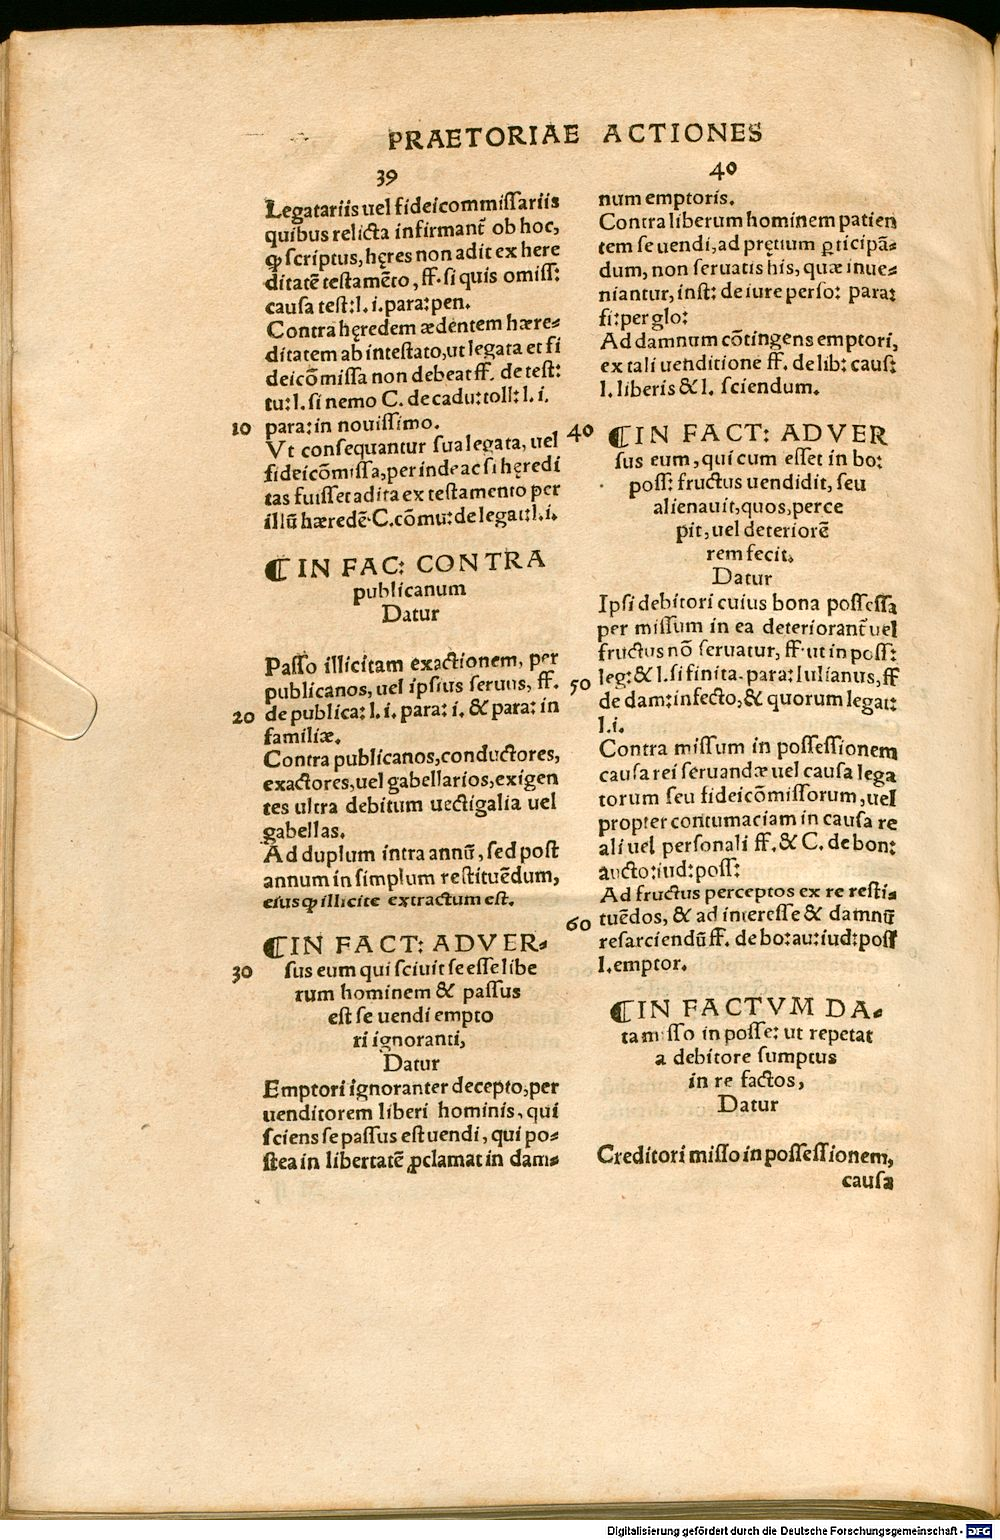 PRAETORIAE ACTIONES
39
Legatariis uel fideicommiſſariis
quibus relicta infirmant̃ ob hoc,
ꝙ ſcriptus, hęres non adit ex here
ditatē teſtamēto, ff. ſi quis omiſſ:
cauſa teſt: l. i. para: pen.
Contra hęredem ædentem hære-
ditatem ab inteſtato, ut legata et fi
deicōmiſſa non debeat ff. de teſt:
tu: l. ſi nemo C. de cadu: toll: l. i.
10 para: in nouiſſimo.
Vt conſequantur ſua legata, uel
fideicōmiſſa, perinde ac ſi hęredi
tas fuiſſet adita ex teſtamento per
illū hæredē. C. cōmu: de legat: l. i.
⸿ IN FAC: CONTRA
publicanum
Datur
Paſſo illicitam exactionem, per
publicanos, uel ipſius ſeruus, ff.
20 de publica: l. i. para: i. & para: in
familiæ.
Contra publicanos, conductores,
exactores, uel gabellarios, exigen
tes ultra debitum uectigalia uel
gabellas.
Ad duplum intra annū, ſed poſt
annum in ſimplum reſtituēdum,
eius ꝙ illicite extractum eſt.
⸿IN FACT: ADVER-
30 ſus eum qui ſciuit ſe eſſe libe
rum hominem & paſſus
eſt ſe uendi empto
ri ignoranti,
Datur
Emptori ignoranter decepto, per
uenditorem liberi hominis, qui
ſciens ſe paſſus eſt uendi, qui po-
ſtea in libertatē ꝓclamat in dam-
40
num emptoris.
Contra liberum hominem patien
tem ſe uendi, ad prętium ꝑticipā-
dum, non ſeruatis his, quæ inue-
niantur, inſt: de iure perſo: para:
fi: per glo:
Ad damnum cōtingens emptori,
ex tali uenditione ff. de lib: cauſ:
l. liberis & l. ſciendum.
40 ⸿IN FACT: ADVER
ſus eum, qui cum eſſet in bo:
poſſ: fructus uendidit, ſeu
alienauit, quos, perce
pit, uel deteriorē
rem fecit.
Datur
Ipſi debitori cuius bona poſſeſſa
per miſſum in ea deteriorant̃ uel
fructus nō ſeruatur, ff. ut in poſſ:
50 leg: & l. ſi finita. para: Iulianus, ff
de dam: infecto, & quorum legat:
l. i.
Contra miſſum in poſſeſſionem
cauſa rei ſeruandæ uel cauſa lega
torum ſeu fideicōmiſſorum, uel
propter contumaciam in cauſa re
ali uel perſonali ff. & C. de bon:
aucto: iud: poſſ:
Ad fructus perceptos ex re reſti-
60 tuēdos, & ad intereſſe & damnū
reſarciendū ff. de bo: au: iud: poſſ
l. emptor.
⸿IN FACTVM DA-
ta miſſo in poſſe: ut repetat
a debitore ſumptus
in re factos,
Datur
Creditori miſſo in poſſeſſionem,
cauſa
Digitalisierung gefördert durch die Deutsche Forschungsgemeinschaft - DFG